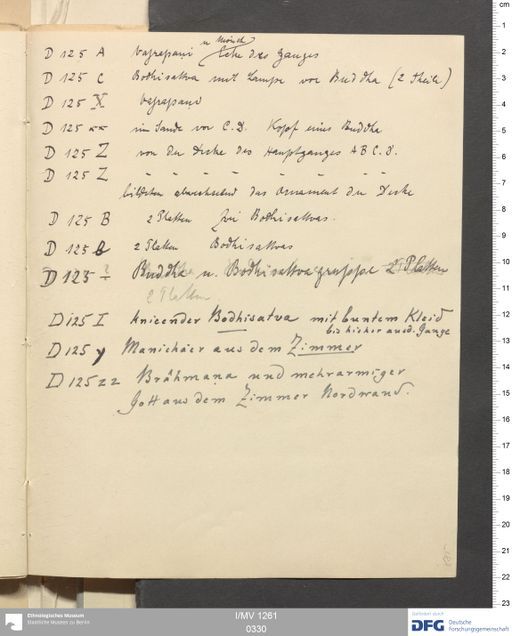 u. Mönch
D 125 A Vajrapani Ecke des Ganges
D 125 C Bodhisatva mit Lampe vor Buddha (2 Theile)
D 125 X Vajrapani
D 125 im Sande vor C.D. Kopf eines Buddha
D 125 Z von der Decke des Hauptganges A B C D.
D 125 Z " " " " " " "
bildeten abwechselnd das Ornament der Decke
D 125 B 2 Platten zwei Bodhisatvas.
D 125 b 2 Platten Bodhisatvas
D 125 ? Buddha u. Bodhisatva gruppe 2 Platten
2 Platten
D 125 I knieender Bodhisatva mit buntem Kleid
bis hieher aus d. Gange
D 125 y Manichäer aus dem Zimmer
D 125 zz Brâhmaṇa und mehrarmiger
Gott aus dem Zimmer Nordwand.
cm
1
2
3
4
5
6
7
8
9
10
11
12
13
14
15
16
17
18
19
20
21
22
23
Ethnologisches Museum
Staatliche Museen zu Berlin
I/MV 1261
0330
gefördert durch
DFG Deutsche
Forschungsgemeinschaft